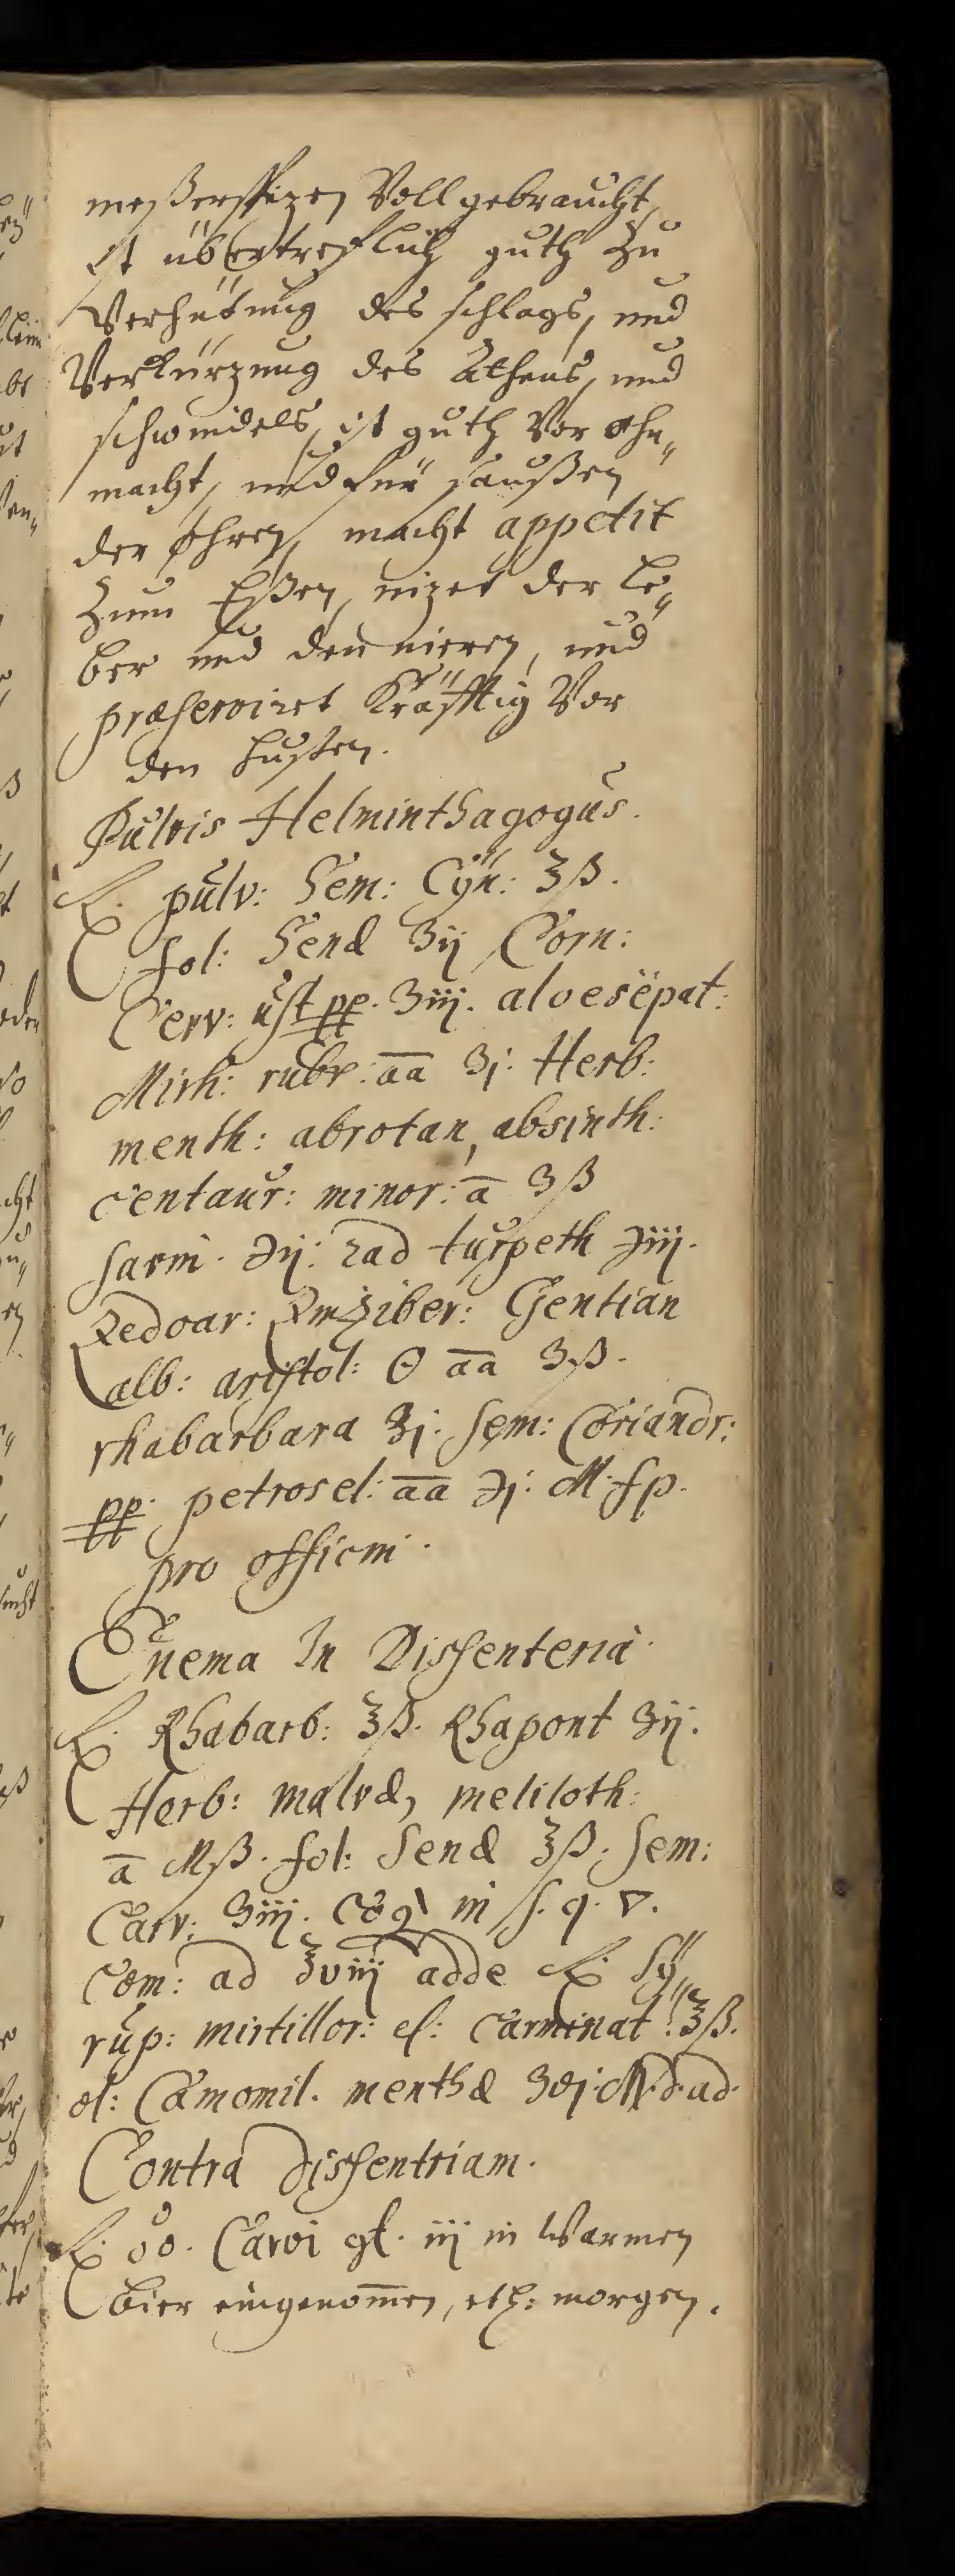 meßerspizen Voll gebraucht,
ist übertreflich guth zu
Verhütung des schlags, und
Verkürzung des Athens, und
schwindels, ist guth Vor ohn„
macht, und für saußen
der ohren, macht appetit
zum Eßen, nizet der le„
ber und den nieren, und
præservirt Kräfftig Vor
den husten.
Pulvis Helminthagogus.
℞. pulv: Sem: Cÿn: ℥ß.
fol: Senæ ʒij Corn:
Cerv: ust pp. ʒiij. aloes ëpat:
Mirh: rubr: aa ʒj. Herb:
menth: abrotan, absinth:
centaur: minor: a ʒß
sarm. ℈ij: rad turpeth ℈iiij.
Zedoar: Zinziber: Gentian
alb: aristol: ʘ aa ʒß.
rhabarbara ʒj. sem: Coriandr:
pp. petrosel: aa ℈j. M. f p.
pro officin.
Enema In Dissenteria.
℞. Rhabarb: ℥ß. Rhapont ʒij.
Herb: malvæ, meliloth:
a Mß. fol: Senæ ℥ß. sem:
Carv: ʒiij. coq in s. q. ▽.
com: ad ℥viij adde ℞. Sÿ„
rup: mirtillor: el: carminat: ℥ß.
ol: Camomil. menthæ M. d. ad.
Contra dissentriam.
℞. oo. Carvi gt. iij in Warmen
bier eingenom̅en, morgen.